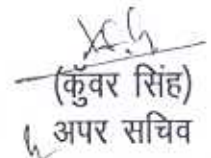 (कुँवर सिंह)
अपर सचिव